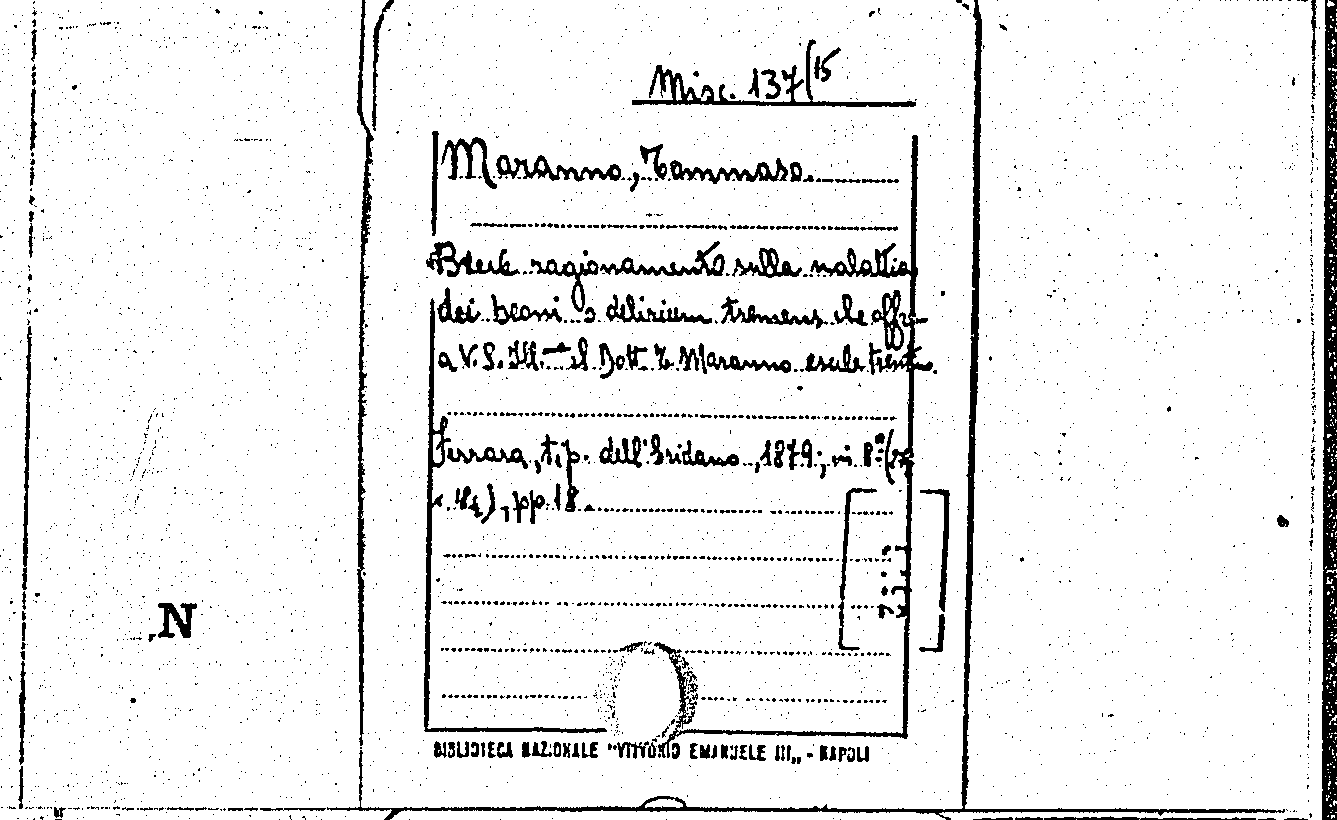 Misc. 137/15
Maranno, Tommaso.
Breve ragionamento sulla malattia
dei beoni o delirium tremens che offre
a V. S. Ill.ma il Dott. T. Maranno esule trent.
Ferrara, tip. dell'Eridano, 1879; in 8°
pp 18.
N
BIBLIOTECA NAZIONALE "VITTORIO EMANUELE III„ - NAPOLI